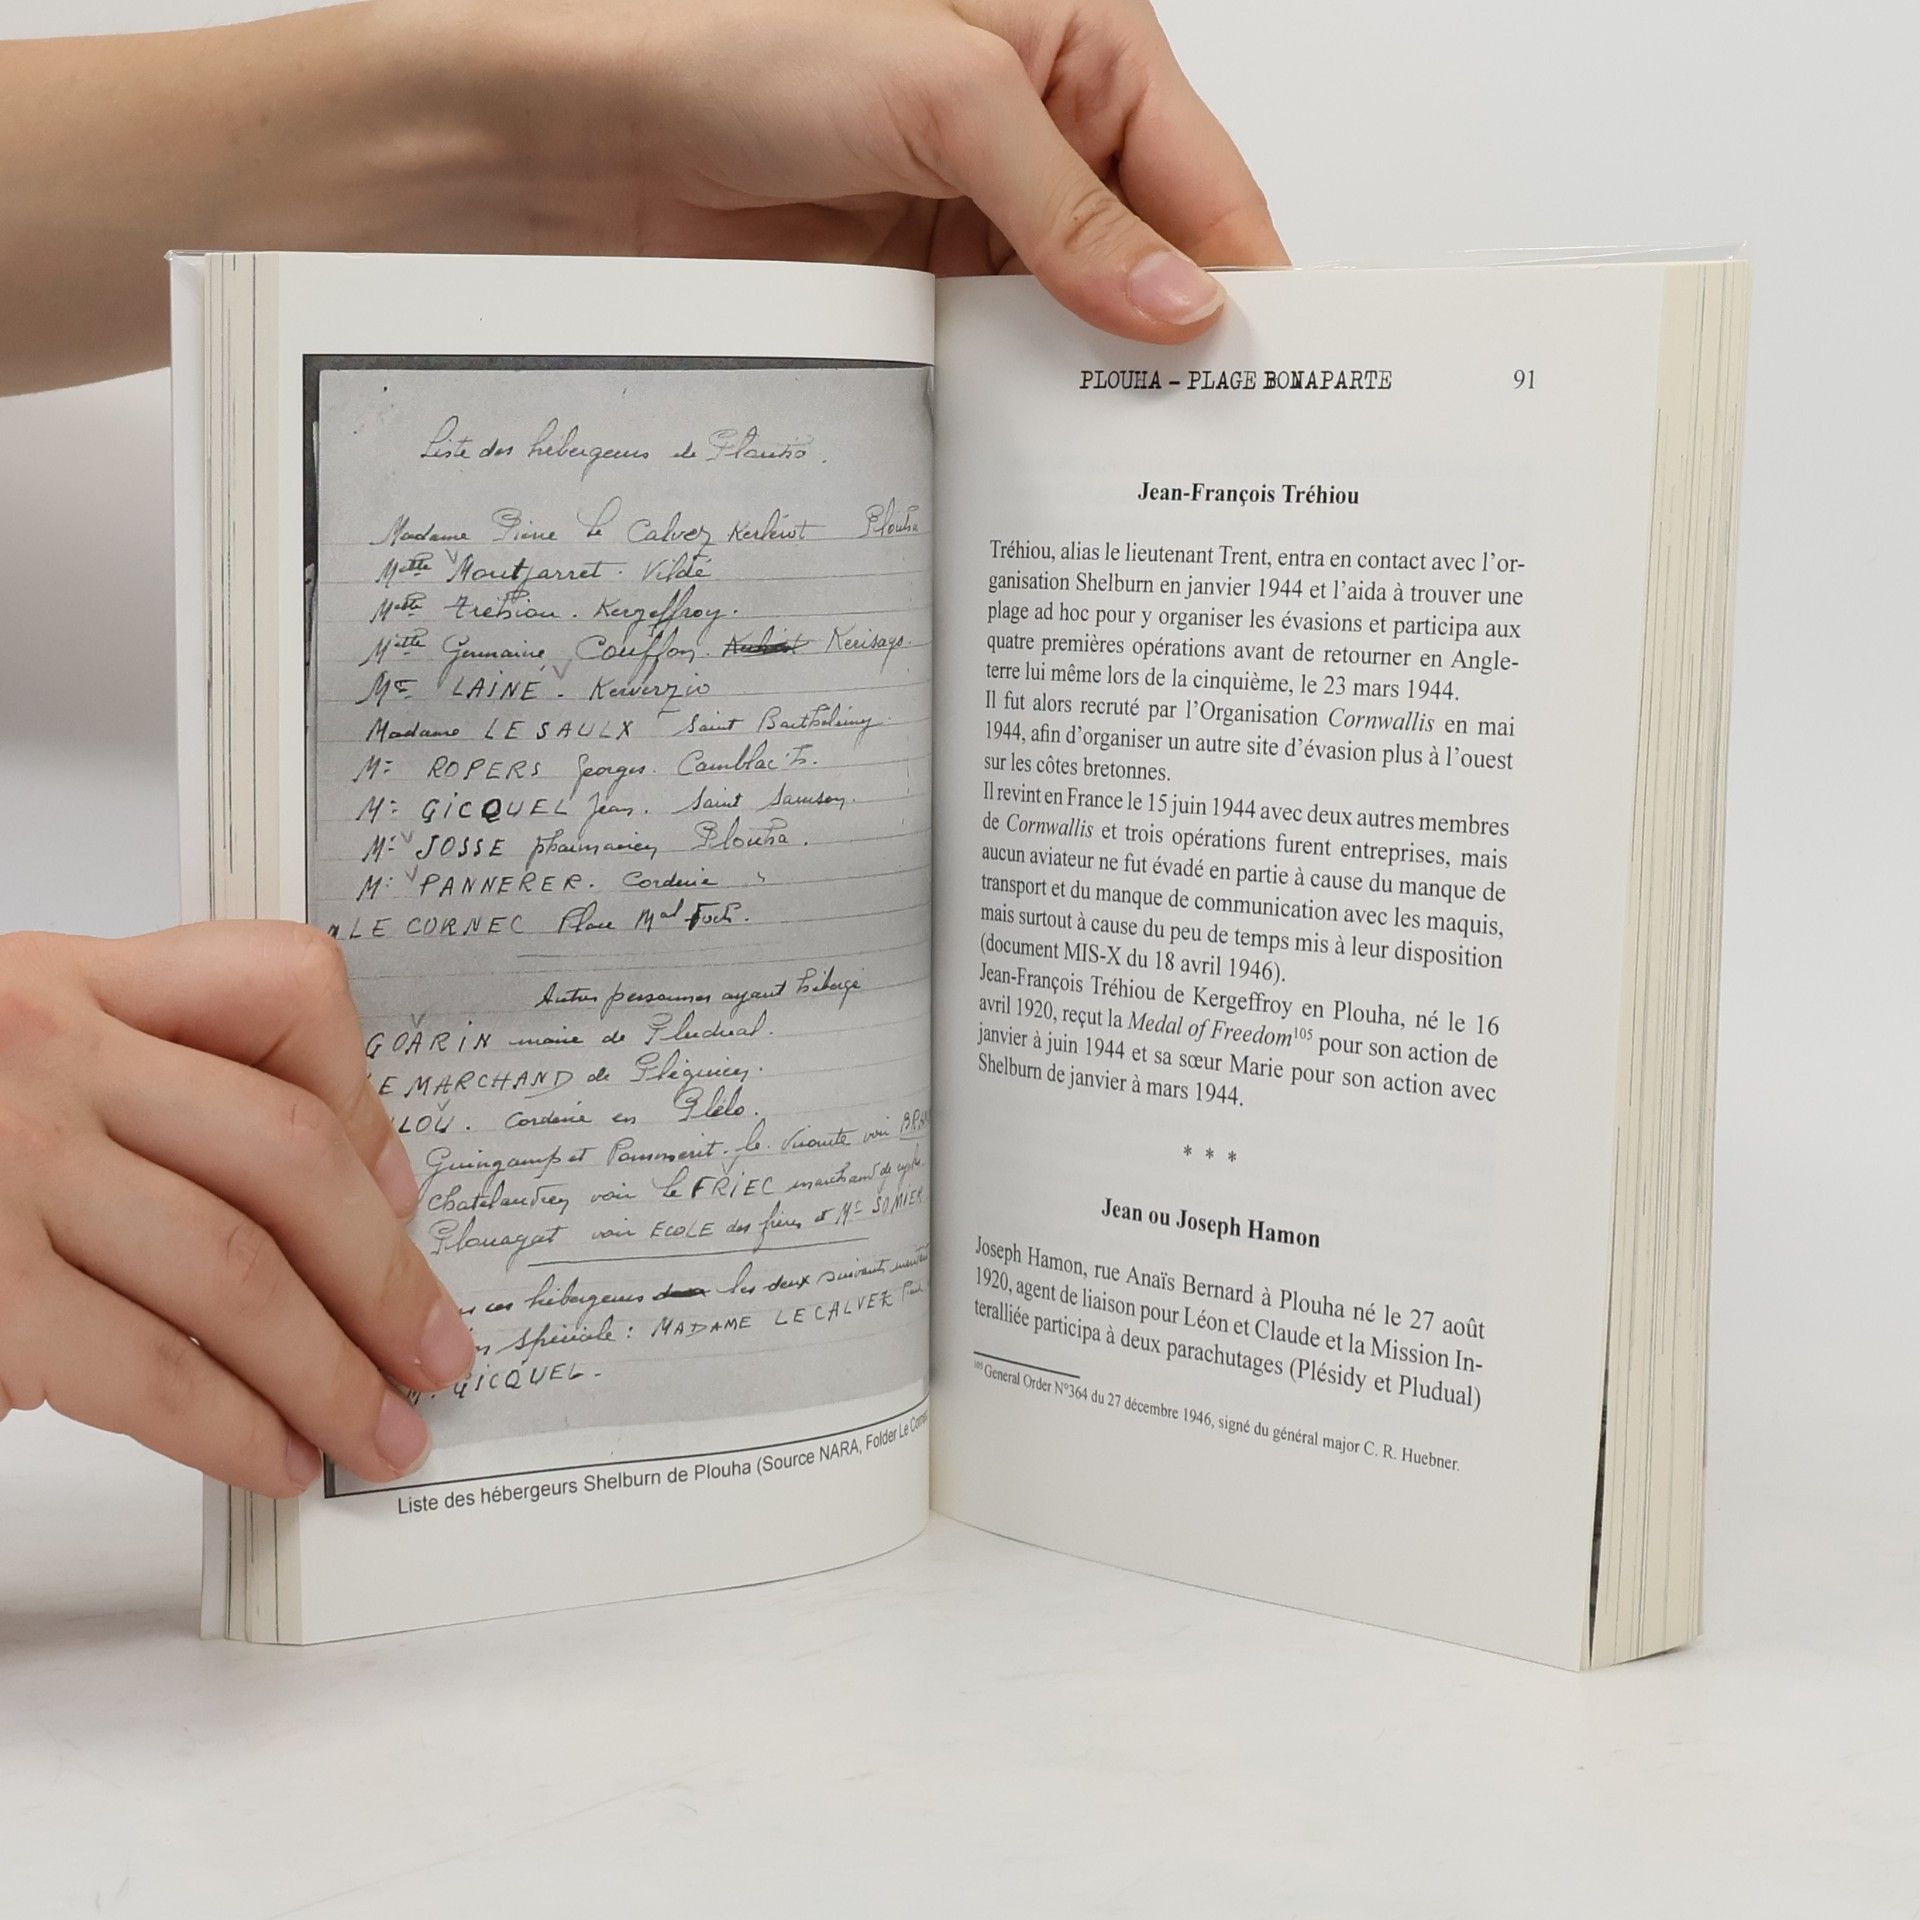 Liste des hébergeurs de Plouha.
Madame Pierre Le Calvez Kerlérot Plouha
Melle Montjarret. Vildé
Melle Tréhiou. Kergeffroy.
Melle Germaine Couffon. Kerisago.
Mr LAINE. Kerverzio
Madame LE SAULX Saint Barthélémy.
Mr ROPERS Georges.
Mr GICQUEL Jean. Saint Samson.
Mr JOSSE pharmacien Plouha.
Mr PANNERER. Corderie "
LE CORNEC Place Mal Foch.
Autres personnes ayant hébergé
GOARIN maire de Pludual.
LE MARCHAND de Pléguien.
LOU. Corderie en Plélo.
Guingamp et Pommerit. le. Vicomte voir
Chatelaudren voir Le FRIEC marchand de cycles.
Plouagat voir ECOLE des frères et Mr SOMIER
ces hébergeurs les deux suivants
spéciale: MADAME LE CALVEZ
GICQUEL.
Liste des hébergeurs Shelburn de Plouha (Source NARA, Folder Le Cornec
PLOUHA – PLAGE BONAPARTE 91
Jean-François Tréhiou
Tréhiou, alias le lieutenant Trent, entra en contact avec l'or-
ganisation Shelburn en janvier 1944 et l'aida à trouver une
plage ad hoc pour y organiser les évasions et participa aux
quatre premières opérations avant de retourner en Angle-
terre lui même lors de la cinquième, le 23 mars 1944.
Il fut alors recruté par l'Organisation Cornwallis en mai
1944, afin d'organiser un autre site d'évasion plus à l'ouest
sur les côtes bretonnes.
Il revint en France le 15 juin 1944 avec deux autres membres
de Cornwallis et trois opérations furent entreprises, mais
aucun aviateur ne fut évadé en partie à cause du manque de
transport et du manque de communication avec les maquis,
mais surtout à cause du peu de temps mis à leur disposition
(document MIS-X du 18 avril 1946).
Jean-François Tréhiou de Kergeffroy en Plouha, né le 16
avril 1920, reçut la Medal of Freedom105 pour son action de
janvier à juin 1944 et sa sœur Marie pour son action avec
Shelburn de janvier à mars 1944.
* * *
Jean ou Joseph Hamon
Joseph Hamon, rue Anaïs Bernard à Plouha né le 27 août
1920, agent de liaison pour Léon et Claude et la Mission In-
teralliée participa à deux parachutages (Plésidy et Pludual)
105 General Order N°364 du 27 décembre 1946, signé du général major C. R. Huebner.